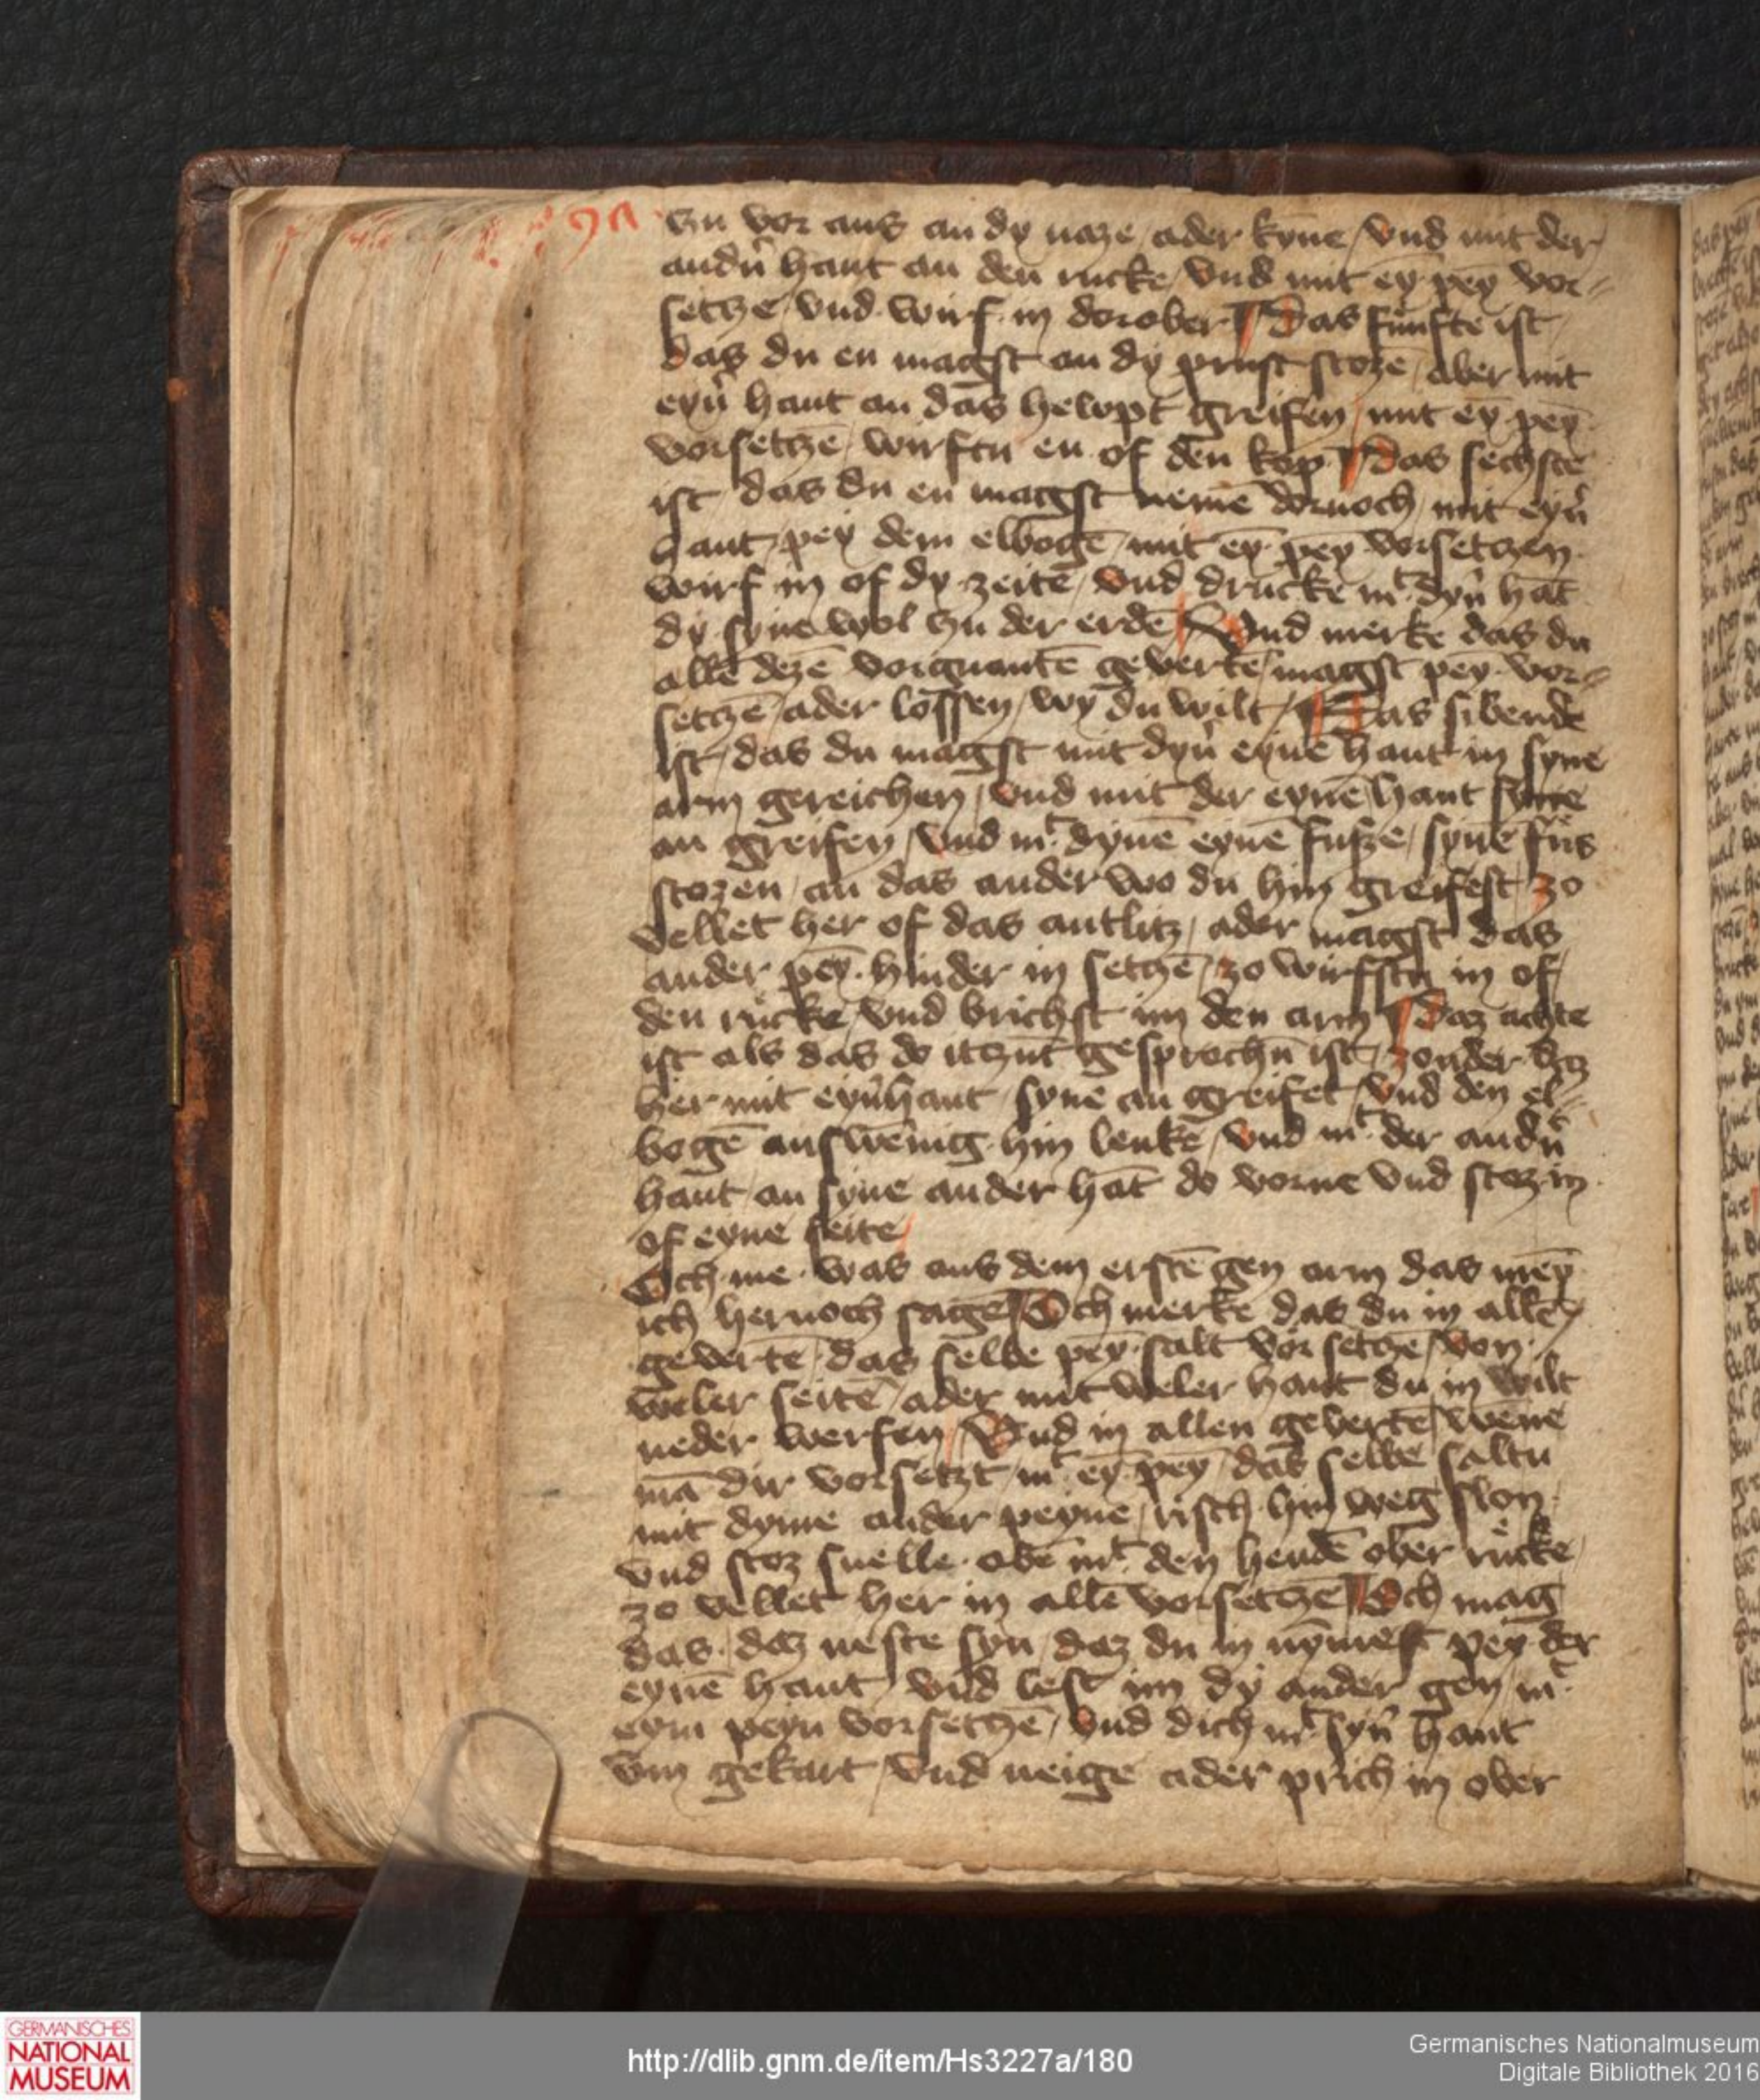 vn vor aus an dy naze ader kyne / vnd mit der
andn̑ hant an den rucke / vnd mit ey pey vor-
setcze / vnd wirf in dorober Das fünfte ist
das du en magst an dy prust stoze / aber mit
eyn̑ hant an das hewpt greifen / mit ey pey
vorsetczē / wirftu en of den kop das sechste
ist / das du en magst nemē dornoch / mit eyn̑
hant / pey dem elbogē / mit ey pey vorsetczen
wirf in of dy zeite / vnd drücke mt dyn̑ hāt
dy syne wol czu der erdē Vnd merke das du
alle dezē vorguantē geverte / magst pey vor-
setczē / ader lossen / wy du wilt / Das sibende
ist / das du magst mit dyn̑ eyne hant in syne
arm gereichen / vnd mit der eynē hant syne
an greifen / vnd mt dynē eynē fusze / synē füs
stozen / an das ander wo du hin greifest / zo
vellet her of das antlitz / ader magst das
ander pey hinder in setczē / zo wirfstu in of
den rücke / vnd brichst im den arm daz achte
ist als das do itczūt gesprochn̄ ist / zonder daz
her mit eyn̑ hant / syne an greifet / vnd den el-
bogē auswēnig hin lenkē / vnd mt der andn̑
hant / an syne ander hāt do vorne vnd stoz in
of eyne seite
Och me was aus dem erstē gen arm das mey
ich hernoch sagē Och merke das du in allē
gevertē / das selbe pey salt vor setczē / von
weler seitē / ader mit weler hant du in wilt
neder werfen / Vnd in allen gevertē / wēne
mā dir vorsetzt / mt ey pey / das selbe saltu
mit dyme ander peyne / risch hin weg slon
vnd stoz snelle obē mt den hendē ober rücke
zo vellet her in allē vorsetczē Och mag
das daz neste syn / daz du in nymest pey der
eynē hant / vnd lest im dy ander gen / mt
eym peyn vorsetczē / vnd dich mt syn̑ hant
vm gekart / vnd neige ader prich in ober
GERMANISCHES
NATIONAL
MUSEUM
http://dlib.gnm.de/item/Hs3227a/180
Germanisches Nationalmuseum
Digitale Bibliothek 2016